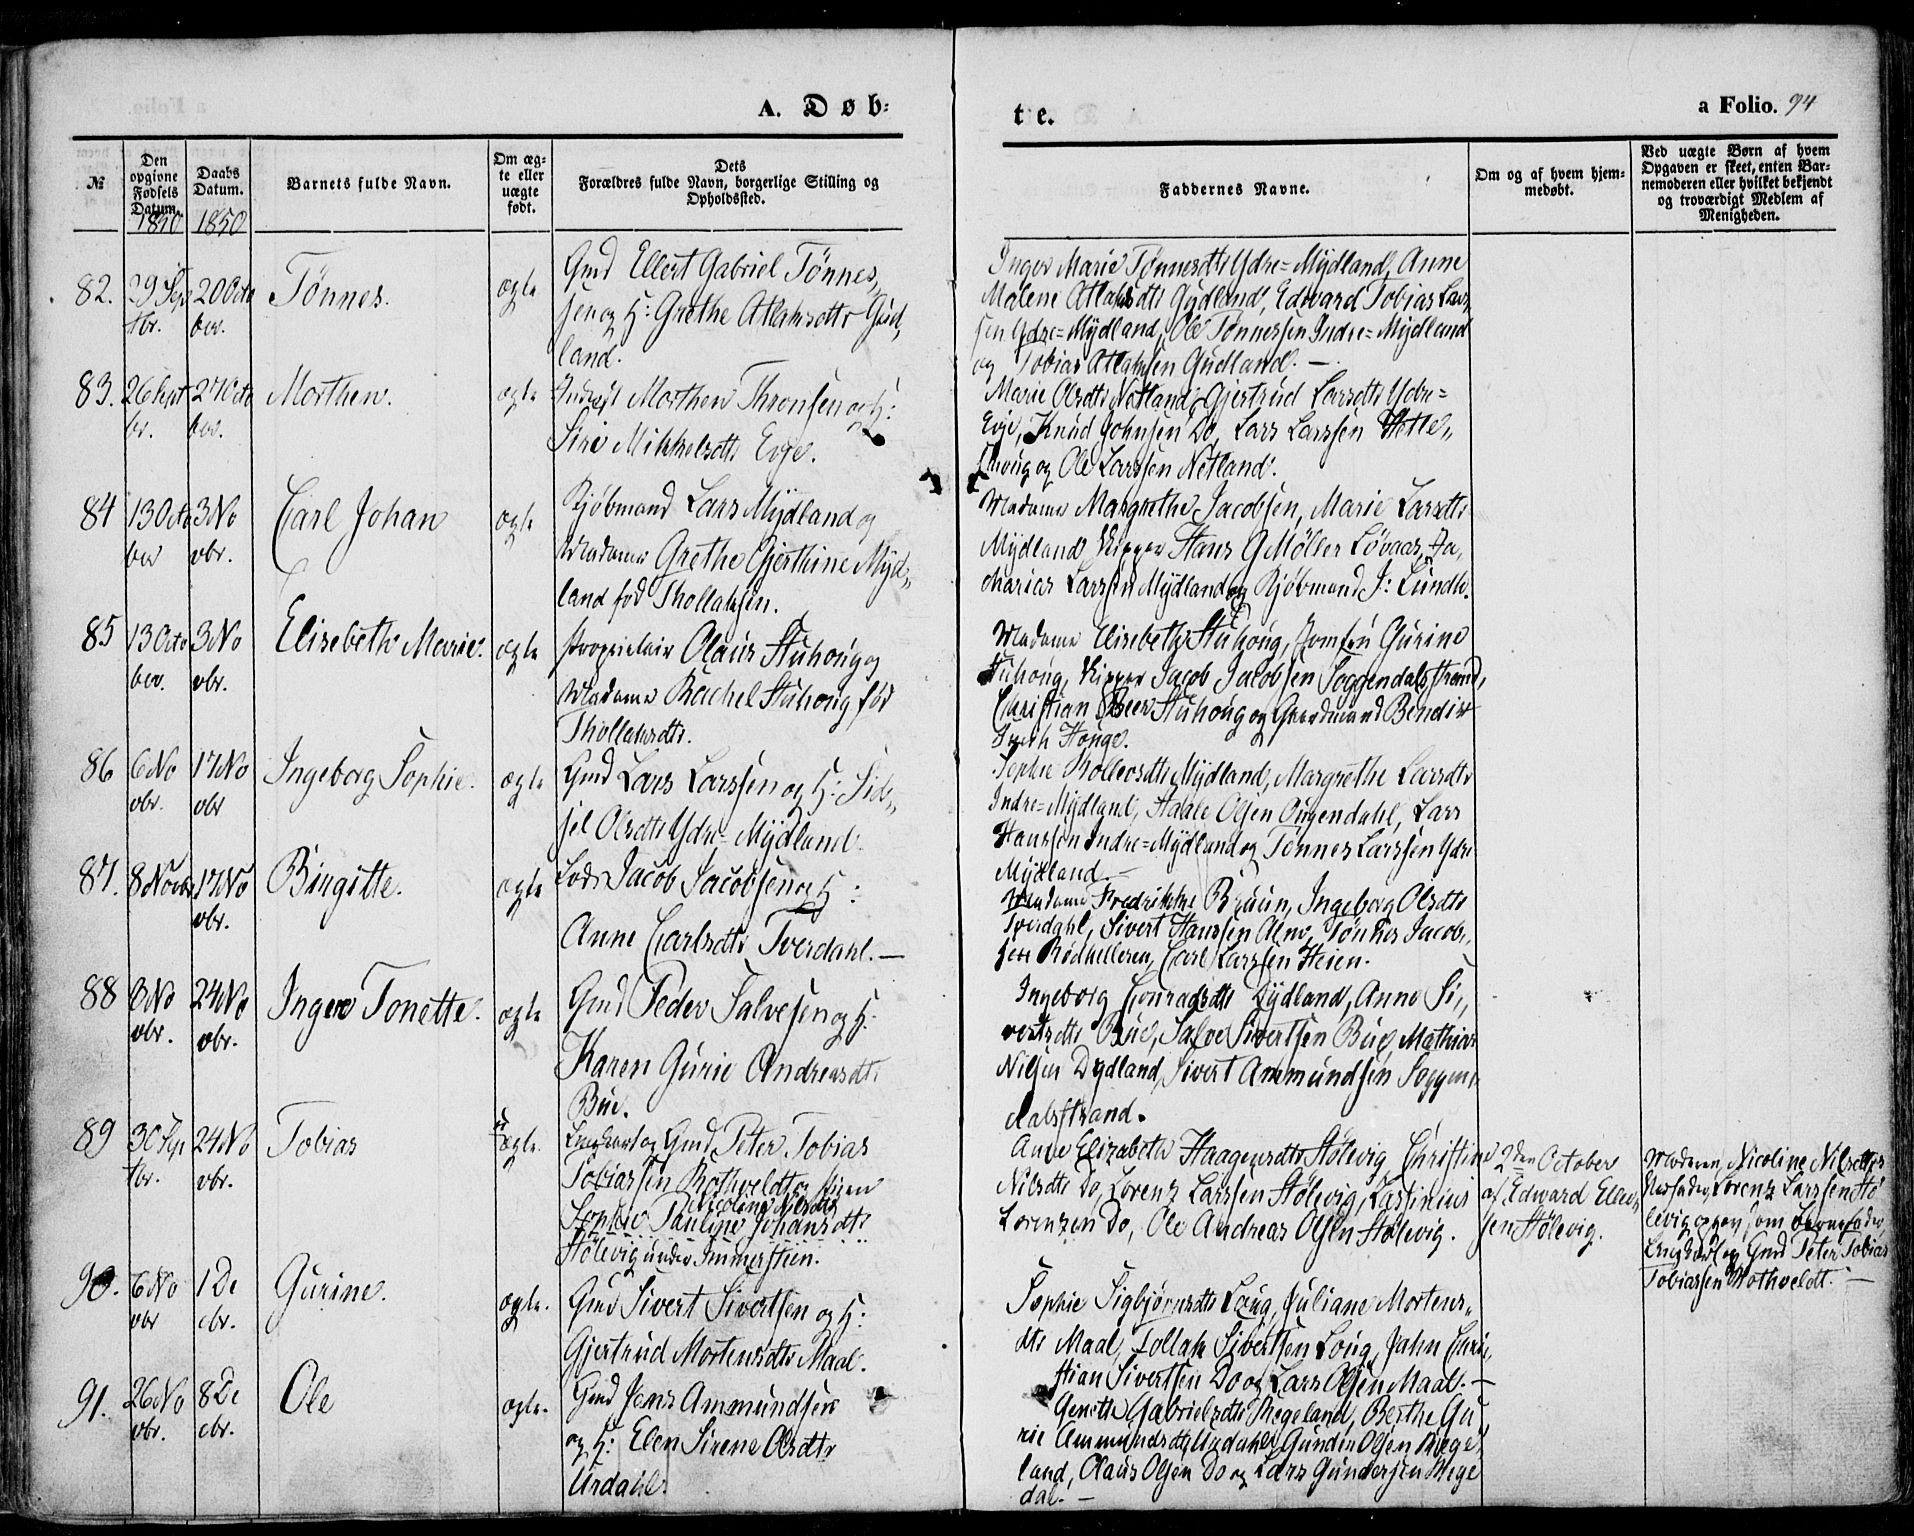 A. Døb=
te.
a Folio. 94
№
Den opgivne Fødsels Datum. 1850
Daabs Datum. 1850
Barnets fulde Navn.
Om ægte eller uægte født.
Dets Forældres fulde Navn, borgerlige Stilling og Opholdssted.
Faddernes Navne.
Om og af hvem hjemmedøbt.
Ved uægte Børn af hvem Opgaven er skeet, enten Barnemoderen eller hvilket bekjendt og troværdigt Medlem af Menigheden.
82. 29 Sep 20 Octo Tønnes. ægte Gmd Ellert Gabriel Tønnes„
tbr. ber. sen og H: Grethe Atlaksdtr Gud„
land.
Inger Marie Tønnesdtr Ydre=Mydland, Anne
Malene Atlaksdtr Gudland, Edward Tobias Lars
sen Ydre=Mydland, Ole Tønnessen Indre=Mydland
og Tobias Atlaksen Gudland. —
83. 26 Sept 27 Octo Morthen. ægte Morthen Thronsen og H:
br. ber. Siri Mikkelsdtr Evje.
Marie Olsdtr Netland, Gjertrud Larsdtr Ydre=
Evje, Knud Johnsen Do, Lars Larssen Hetle„
og Ole Larssen Netland.
84 13 Octo 3 No Carl Johan ægte Kjøbmand Lars Mydland og
ber vbr. Madame Grethe Gjerthine Myd„
land fød Thollaksen.
Madame Margrethe Jacobsen, Marie Larsdtr
Mydland, Skipper Hans G Møller Løvaas, Za„
charias Larssen Mydland og Kjøbmand J: Lundh.
85 13 Octo 3 No Elisebeth Marie. ægte Proprietair Olaus Stuhoug og
ber. vbr. Madame Rachel Stuhoug fød
Thollaksdtr.
Madame Elisebeth Stuhoug, Jomfru Gurine
Stuhoug, Skipper Jacob Jacobsen Soggendalsstrand,
Christian Beer Stuhoug og Gaardmand Bendix
Houge.
86 6 No 17 No Ingeborg Sophie. ægte Gmd Lars Larssen og H: Sid„
vbr. vbr sel Olsdtr Ydre=Mydland.
Sophie Rolleosdtr Mydland, Margrethe Larsdtr
Indre=Mydland, Adale Olsen Ougendahl, Lars
Hanssen Indre=Mydland og Tønnes Larssen Ydre
Mydland. —
87. 8 Novbr 17 No Birgitte. ægte Lods Jacob Jacobsen og H:
vbr. Anne Carlsdtr Tverdahl. —
Madame Fredrikke Bruun, Ingeborg Olsdtr
Tverdahl, Sivert Hanssen Alme, Tønnes Jacob„
sen Rødhelleren, Carl Larssen Heien.
88 8 No 24 No Inger Tonette. ægte Gmd Peder Salvesen og H:
vbr. vbr. Karen Gurie Andreasdtr
Bue.
Ingeborg Conradsdtr Dydland, Anne Si„
vertsdtr Bue, Salve Sivertsen Bue, Mathias
Nilsen Dydland, Sivert Ammundsen Soggen„
dalsstrand.
89 30 Sep 24 No Tobias uægte. Ungkarl og Gmd Peter Tobias
tbr. vbr. Tobiassen Rothveldt og Pigen
Nicoline Nilsdtr
Sophie Pauline Johansdtr
Stølevig under Immerstien.
Ane Elizabeth Haagensdtr Stølevig, Christine
Nilsdtr Do, Lorenz Larssen Stølevig, Lastinius
Lorenzen Do, Ole Andreas Olsen Stølevig.
2den October
af Edward Elias„
sen Stølevig.
Moderen, Nicoline Nilsdtter
Lorenz Larssen Stø
levig opgav, som Barnefader
Ungkarl og Gmd Peter Tobias
Tobiassen Rothveldt. —
90. 6 No 1 De Gurine. ægte. Gmd Sivert Sivertsen og H:
vbr cbr. Gjertrud Mortensdtr Maal.
Sophie Sigbjørnsdtr Loug, Juliane Mortens„
dtr Maal, Tollak Sivertsen Loug, John Chris„
tian Sivertsen Do og Lars Olsen Maal. —
91. 26 No 8 De Ole ægte. Gmd Jens Ammundsen
vbr. cbr. og H: Elen Sirene Olsdtr
Urdahl.
Genette Gabrielsdtr Regeland, Berthe Gu„
rie Ammundsdtr Urdahl, Gunder Olsen Rege„
land, Olaus Olsen Do og Lars Gundersen Rege
dal. —